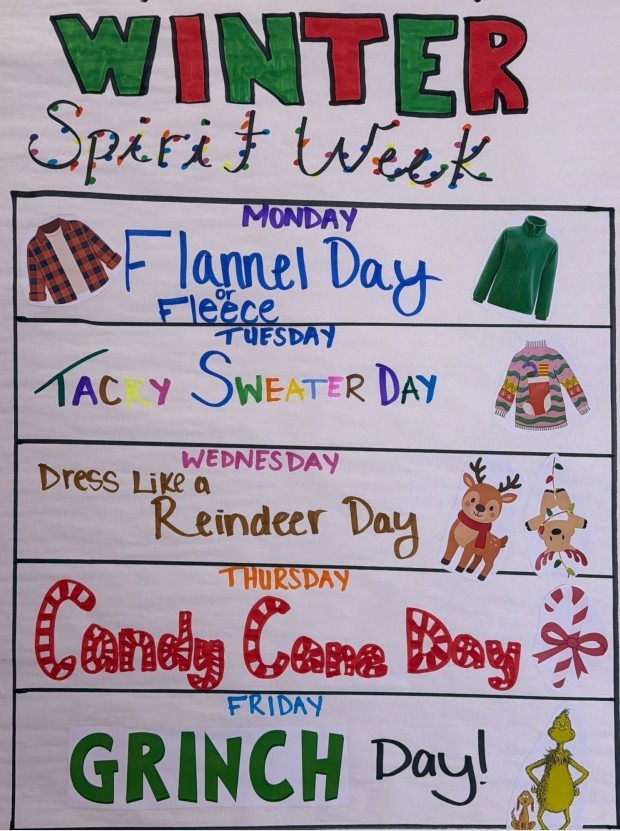 WINTER
Spirit Week
MONDAY
Flannel Day
or
Fleece
TUESDAY
TACKY SWEATER DAY
WEDNESDAY
Dress Like a
Reindeer Day
THURSDAY
Candy Cane Day
FRIDAY
GRINCH Day!